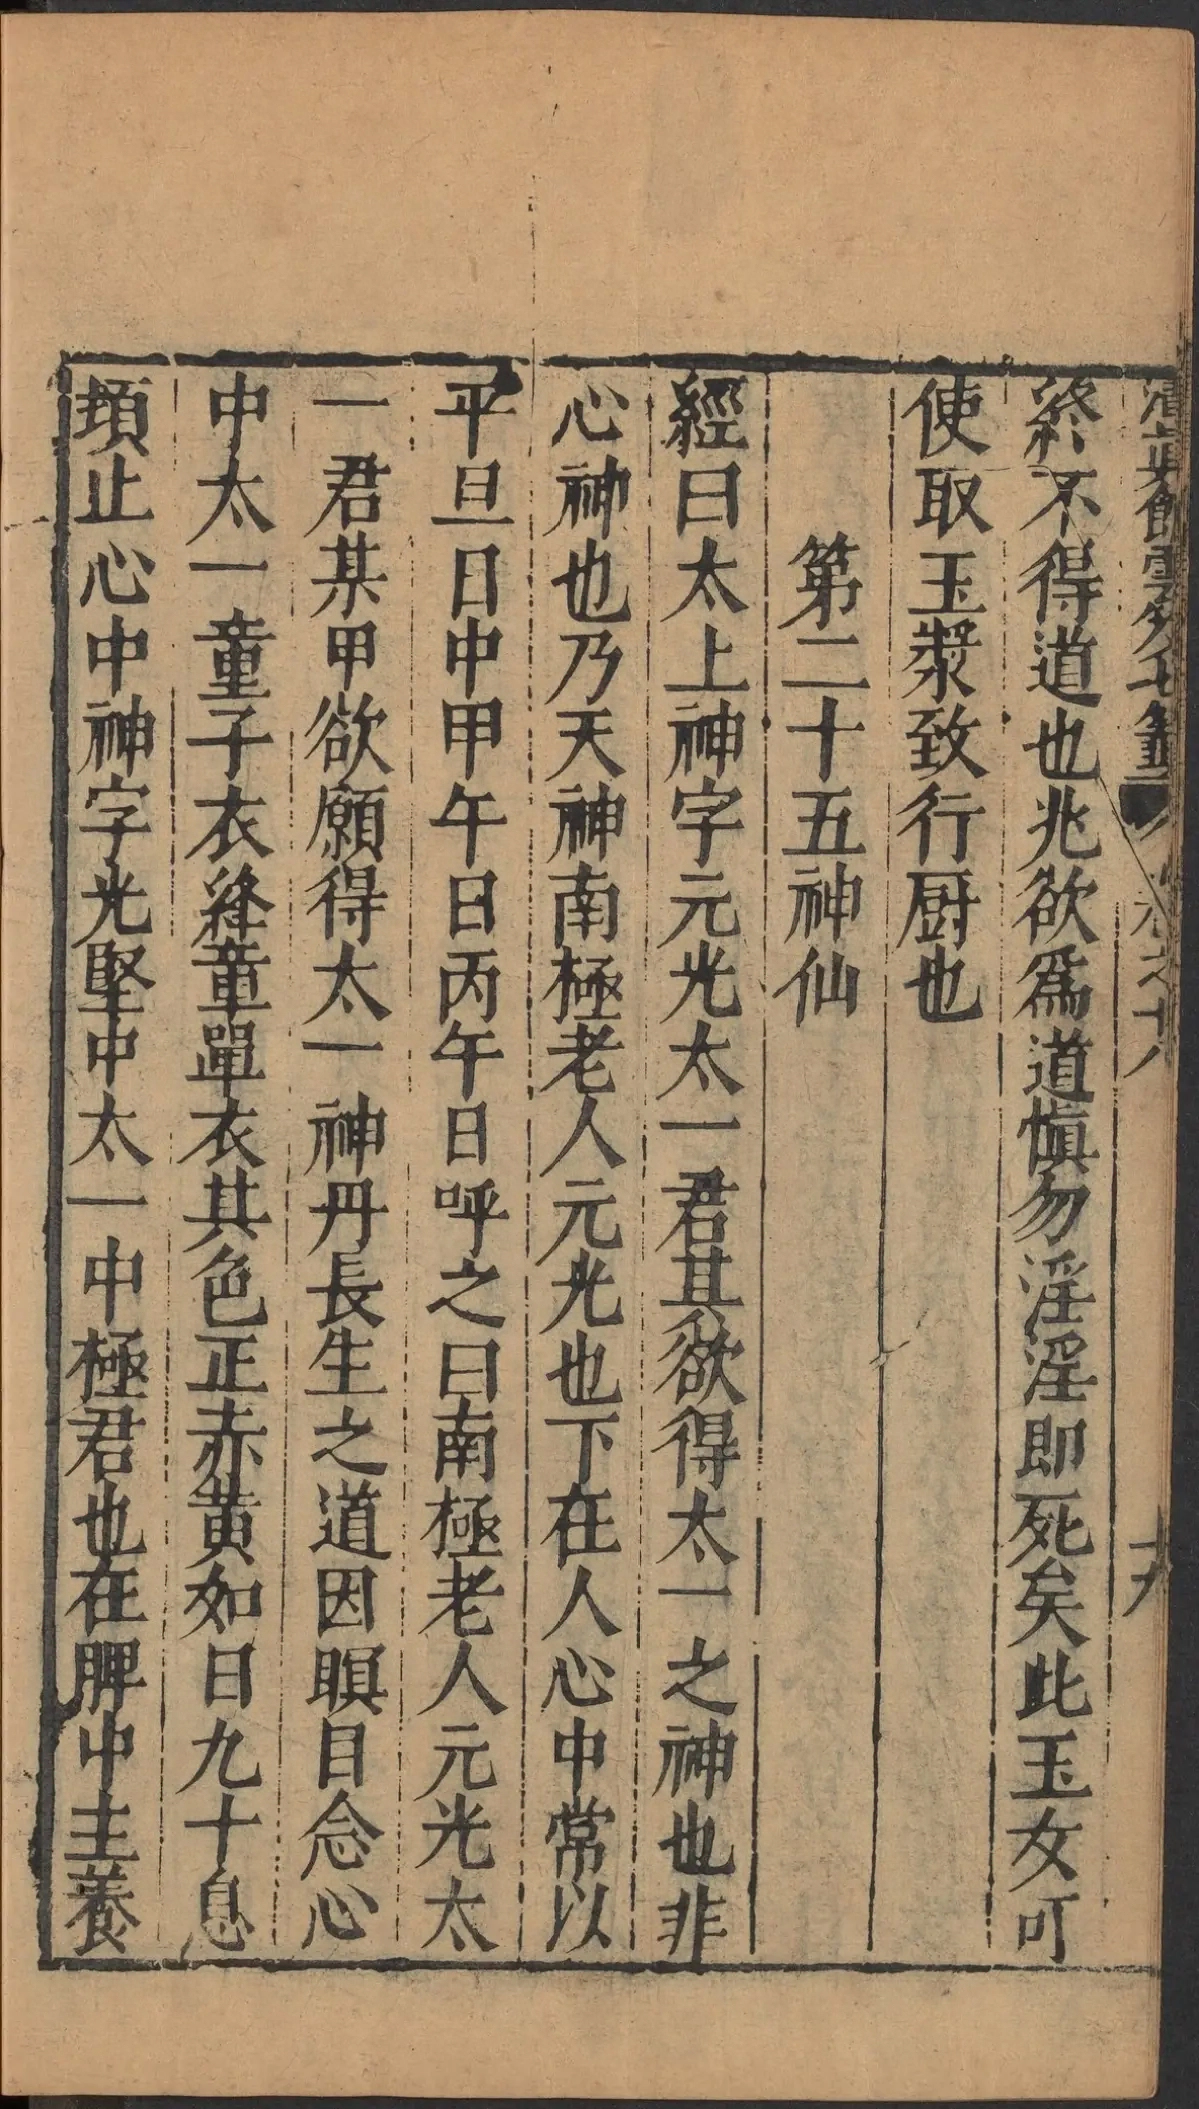 清真館雲笈七籤 卷之十八 十九
終不得道也兆欲爲道愼勿淫淫即死矣此玉女可
使取玉漿致行厨也
第二十五神仙
經曰太上神字元光太一君其欲得太一之神也非
心神也乃天神南極老人元光也下在人心中常以
平旦日中甲午日丙午日呼之曰南極老人元光太
一君某甲欲願得太一神丹長生之道因瞑目念心
中太一童子衣絳章單衣其色正赤黄如日九十息
頃止心中神字光堅中太一中極君也在脾中主養